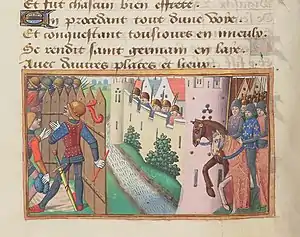 Et fut chasun bien estrete.
En procedant tout dune voye
Et conquestant tousiours en mieulx
Se rendit saint germain en laye.
Avec dautres places et lieux.